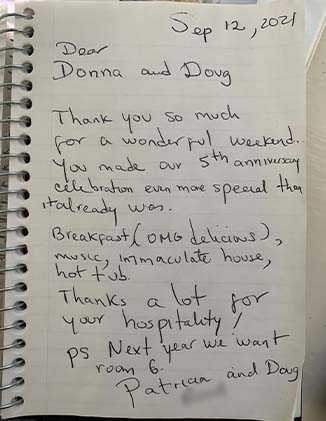 Sep 12, 2021
Dear
Donna and Doug
Thank you so much
for a wonderful weekend.
You made our 5th anniversary
celebration even more special than
it already was.
Breakfast (OMG delicious),
music, immaculate house,
hot tub.
Thanks a lot for
your hospitality!
PS Next year we want
room 6.
Patricia and Doug